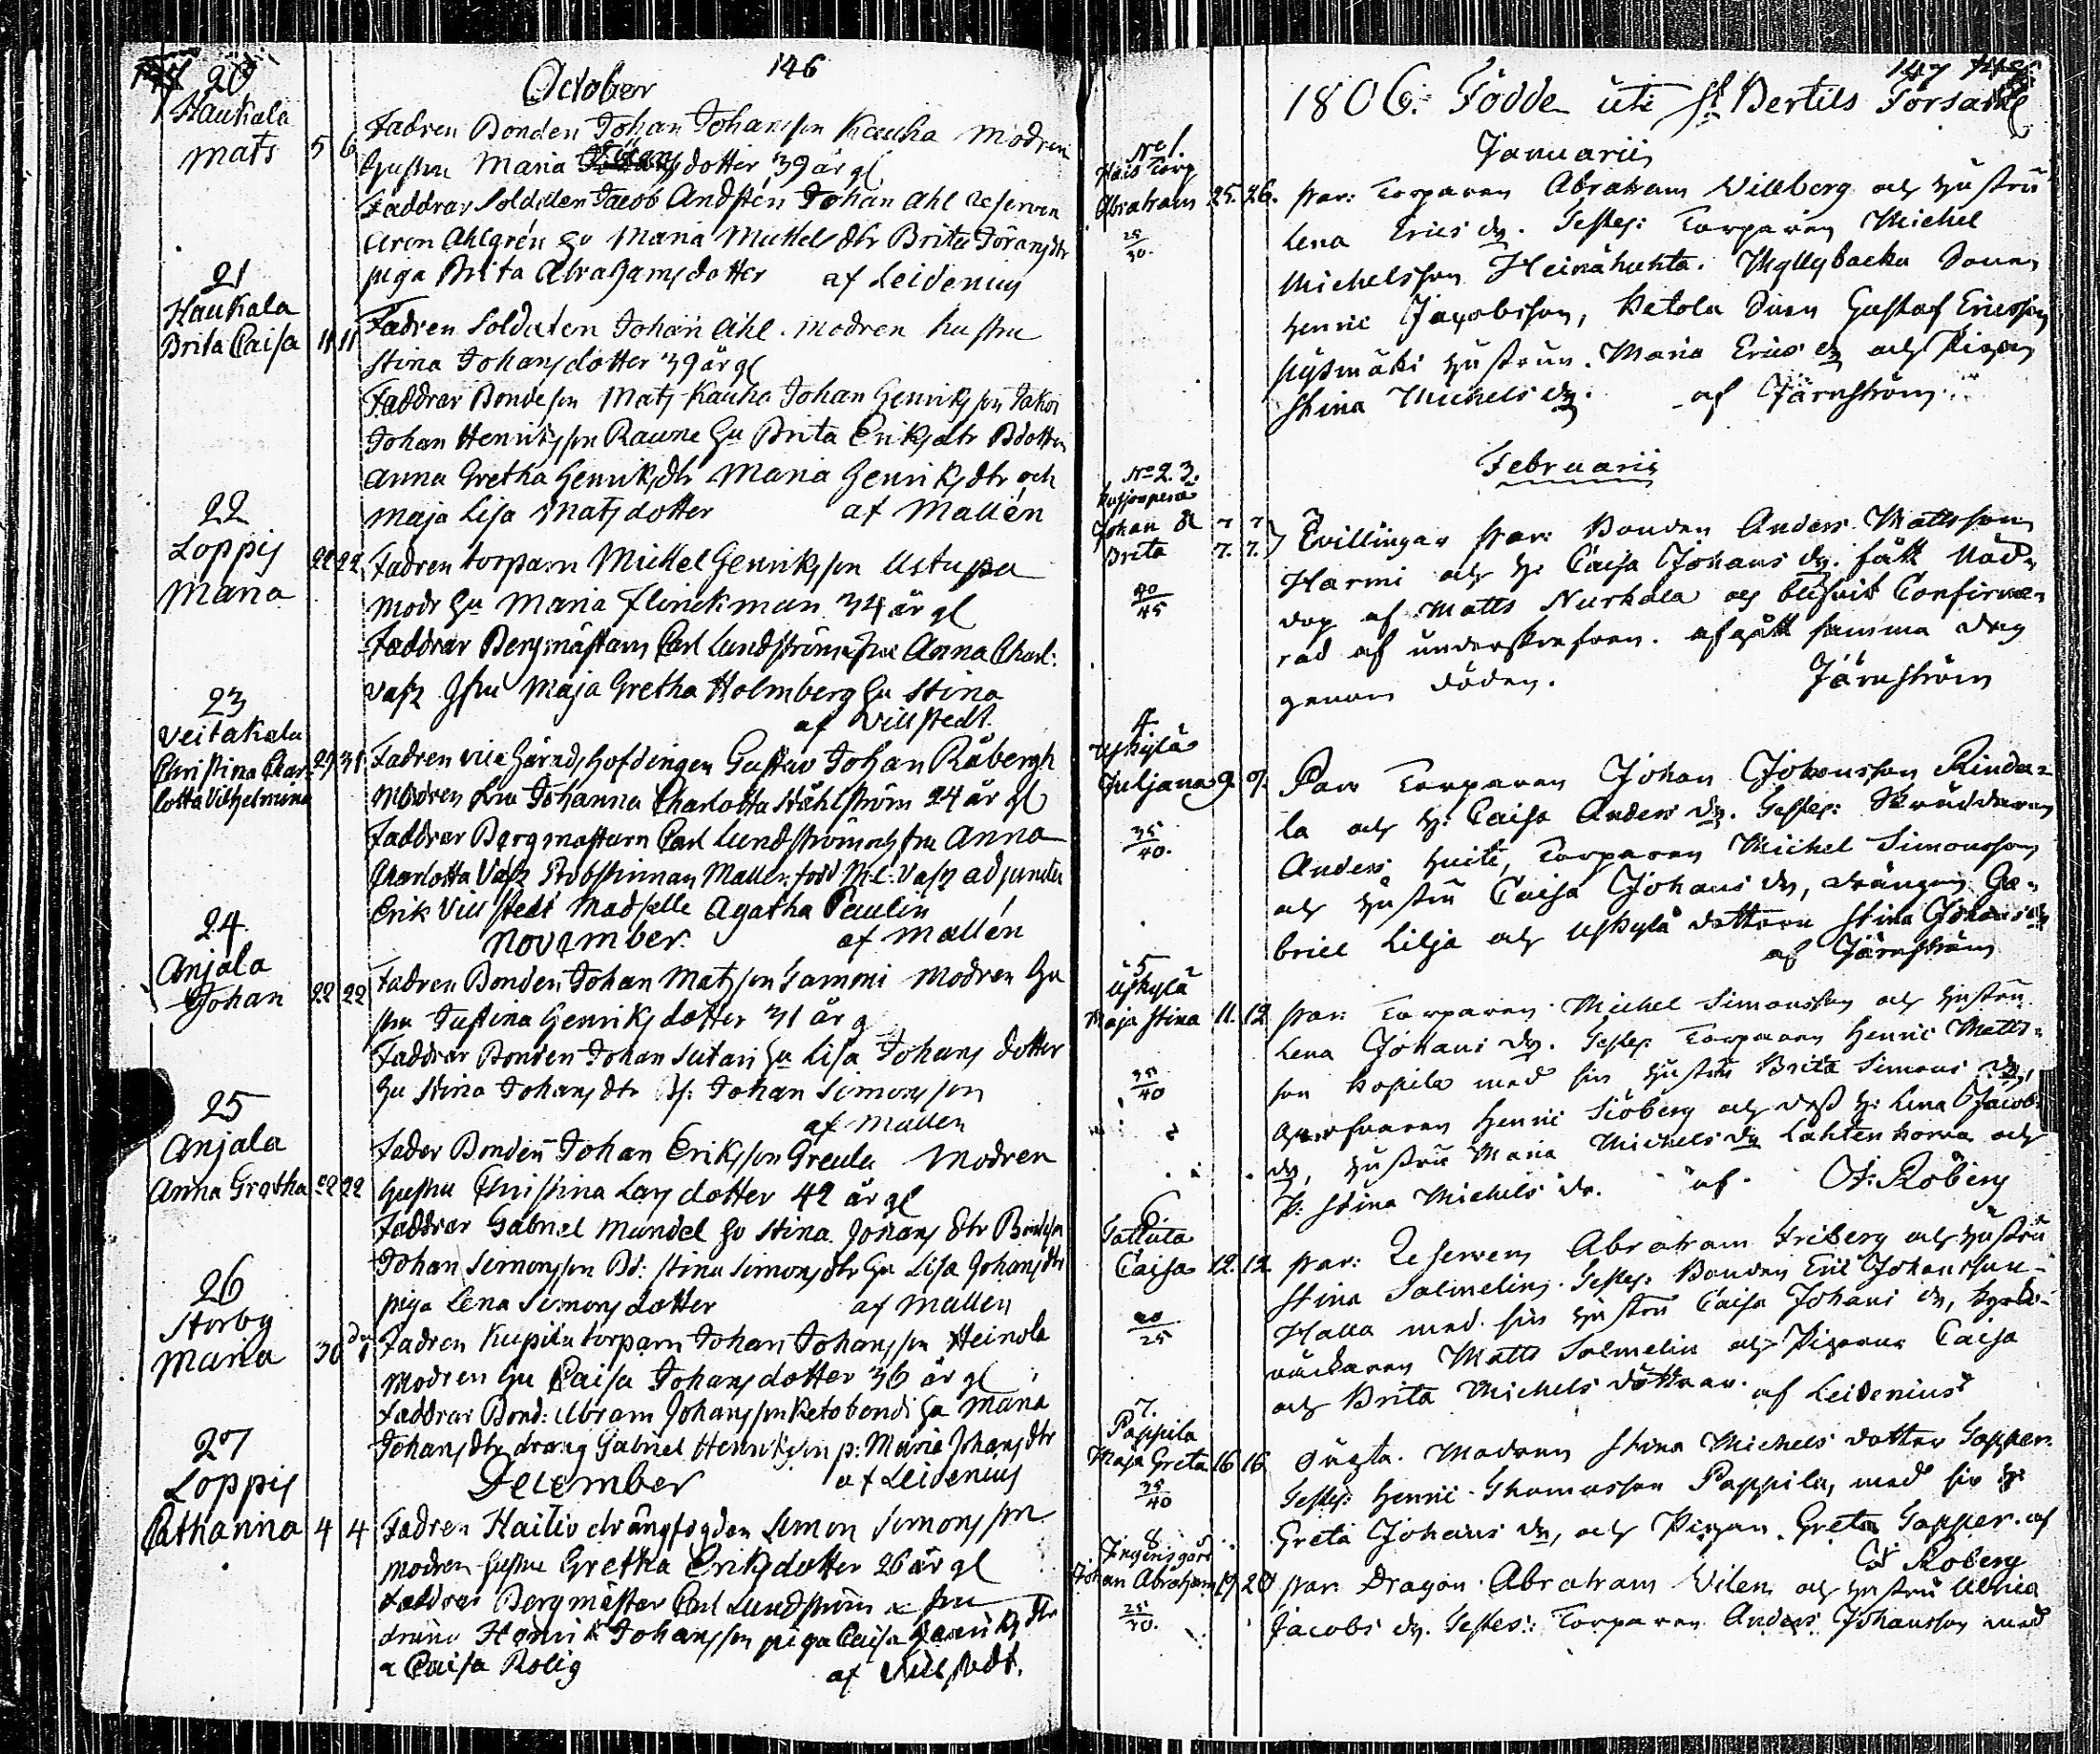 146
October
20
Haukala
Mats 5 6
Fadren Bonden Johan Johansson Kauha Modren
Hustru Maria dotter 39 år gl
Faddrar Soldaten Jacob Andstén Johan Ahl reserven
Aron Ahlgrén Hu Maria Mickels dtr Brita Göransdtr
piga Brita Abrahamsdotter af Leidenius
21
Haukala
Brita Caisa 11 11
Fadren Soldaten Johan Ahl. modren hustru
Stina Johansdotter 39 år gl
Faddrar Bondeson Mats Kauha Johan Henriksson
Johan Henriksson Raune Hu Brita Eriksdtr
Anna Gretha Henriksdtr Maria Henriksdtr och
Maja Lisa Matsdotter af Mallén
22
Loppis
Maria 22 22
Fadren torparn Mickel Henriksson Ustupa
Modr Hu Maria Flinckman 34 år gl
Faddrar Bergmästarn Carl Lundström Fru Anna Charl:
Maja Gretha Holmberg Hu Stina
af Villstedt.
23
Veitakala
Christina Char
lotta Vilhelmina 29 31
Fadren vice häradshöfdingen Gustav Johan Råbergh
Modren Fru Johanna Charlotta Ståhlström 24 år gl
Faddrar Bergmästarn Carl Lundström och fru Anna
Charlotta Prostinnan Mallén född adjuncten
Erik Villstedt Madselle Agatha Paulin
November. af Mallén
24
Anjala
Johan 22 22
Fadren Bonden Johan Matsson Sammi Modren Hu
stru Justina Henriksdotter 31 år g
Faddrar Bonden Johan Sutari Hu Lisa Johans dotter
Hu Stina Johansdtr Johan Simonsson
af Mallén
25
Anjala
Anna Gretha 22 22
Fader Bonden Johan Eriksson Greula Modren
Hustru Christina Larsdotter 42 år gl
Faddrar Gabriel Mundel Hu Stina Johans dtr
Johan Simonsson Bd: Stina Simonsdtr Hu Lisa Johansdtr
piga Lena Simonsdotter af Mallén
26
Storby
Maria 30 1
Fadren Kupila torparn Johan Johansson Heinola
Modren Hu Caisa Johansdotter 36 år gl
Faddrar Bond: Abram Johansson Ketobondi Hu Maria
Johansdtr dräng Gabriel Henriksson p: Maria Johansdtr
December af Leidenius
27
Loppis
Catharina 4 4
Fadren Haitio drängfogden Simon Simonsson
modren hustru Gretha Eriksdotter 26 år gl
Faddrar Bergmäster Carl Lundström & fru
Henrik Johansson piga Caisa Henriksdtr
& Caisa Rolig af Villstedt.
147
1806. Födde uti St Bertils Församl
Januarii
No 1.
Torp
Abraham 25. 26.
25
30.
Par: Torparen Abraham Villberg och Hustru
Lena Erics dr. Testes: Torparen Michel
Michelsson Heinähuhta. Myllybacka Sonen
Henric Jacobsson, Ketola Sonen Gustaf Ericsson
hustrun Maria Erics dr och Pigan
Stina Michels dr. af Järnström.
Februarii
No 2. 3.
Johan &
Brita 7. 7.
40
45
Tvillingar Par: Bonden Anders Mattsson
Harmi och H: Caisa Johans dr. fått Nöd-
dop af Matts Nurkala och blifvit Confirme-
rad af underskrefven. afgått samma dag
genom döden. Järnström
4.
Uskylä
Juljana 9. 9.
35
40.
Par Torparen Johan Johansson Rinda-
la och H: Caisa Anders dr. Testes: Skräddaren
Anders Huite, Torparen Michel Simonsson
och Hustru Caisa Johans dr, drängen Ga-
briel Lilja och Uskylä dottren Stina Johans dr
af Järnström
5
Uskylä
Maja Stina 11. 12
35
40
Par: Torparen Michel Simonsson och Hustru
Lena Johans dr. Testes Torparen Henric Matts-
son Kopila med sin Hustru Brita Simons dr,
Henric Siöberg och dess H: Lena Jacobs
dr, Hustru Maria Michels dr Lahtenkorva och
P: Stina Michels dr. af. Roberg
6.
Tattula
Caisa 12. 12
20
25
Par: Reserven Abraham Friberg och Hustru
Stina Salmelin. Testes: Bonden Eric Johansson
Halla med sin Hustru Caisa Johans dr, Kyrko-
väcktaren Matts Salmelin och Pigorna Caisa
och Brita Michels döttrar. af Leidenius
7.
Pappila
Maja Greta 16 16
35
40
Oägta. Modren Stina Michels dotter Topper.
Testes: Henric Thomasson Pappila, med sin H:
Greta Johans dr, och Pigan Greta Topper. af
Roberg
8
Johan Abraham 19. 20
25
30.
Par: Dragon Abraham Vilen och Hustru Ulrica
Jacobs dr. Testes: Torparen Anders Johansson med